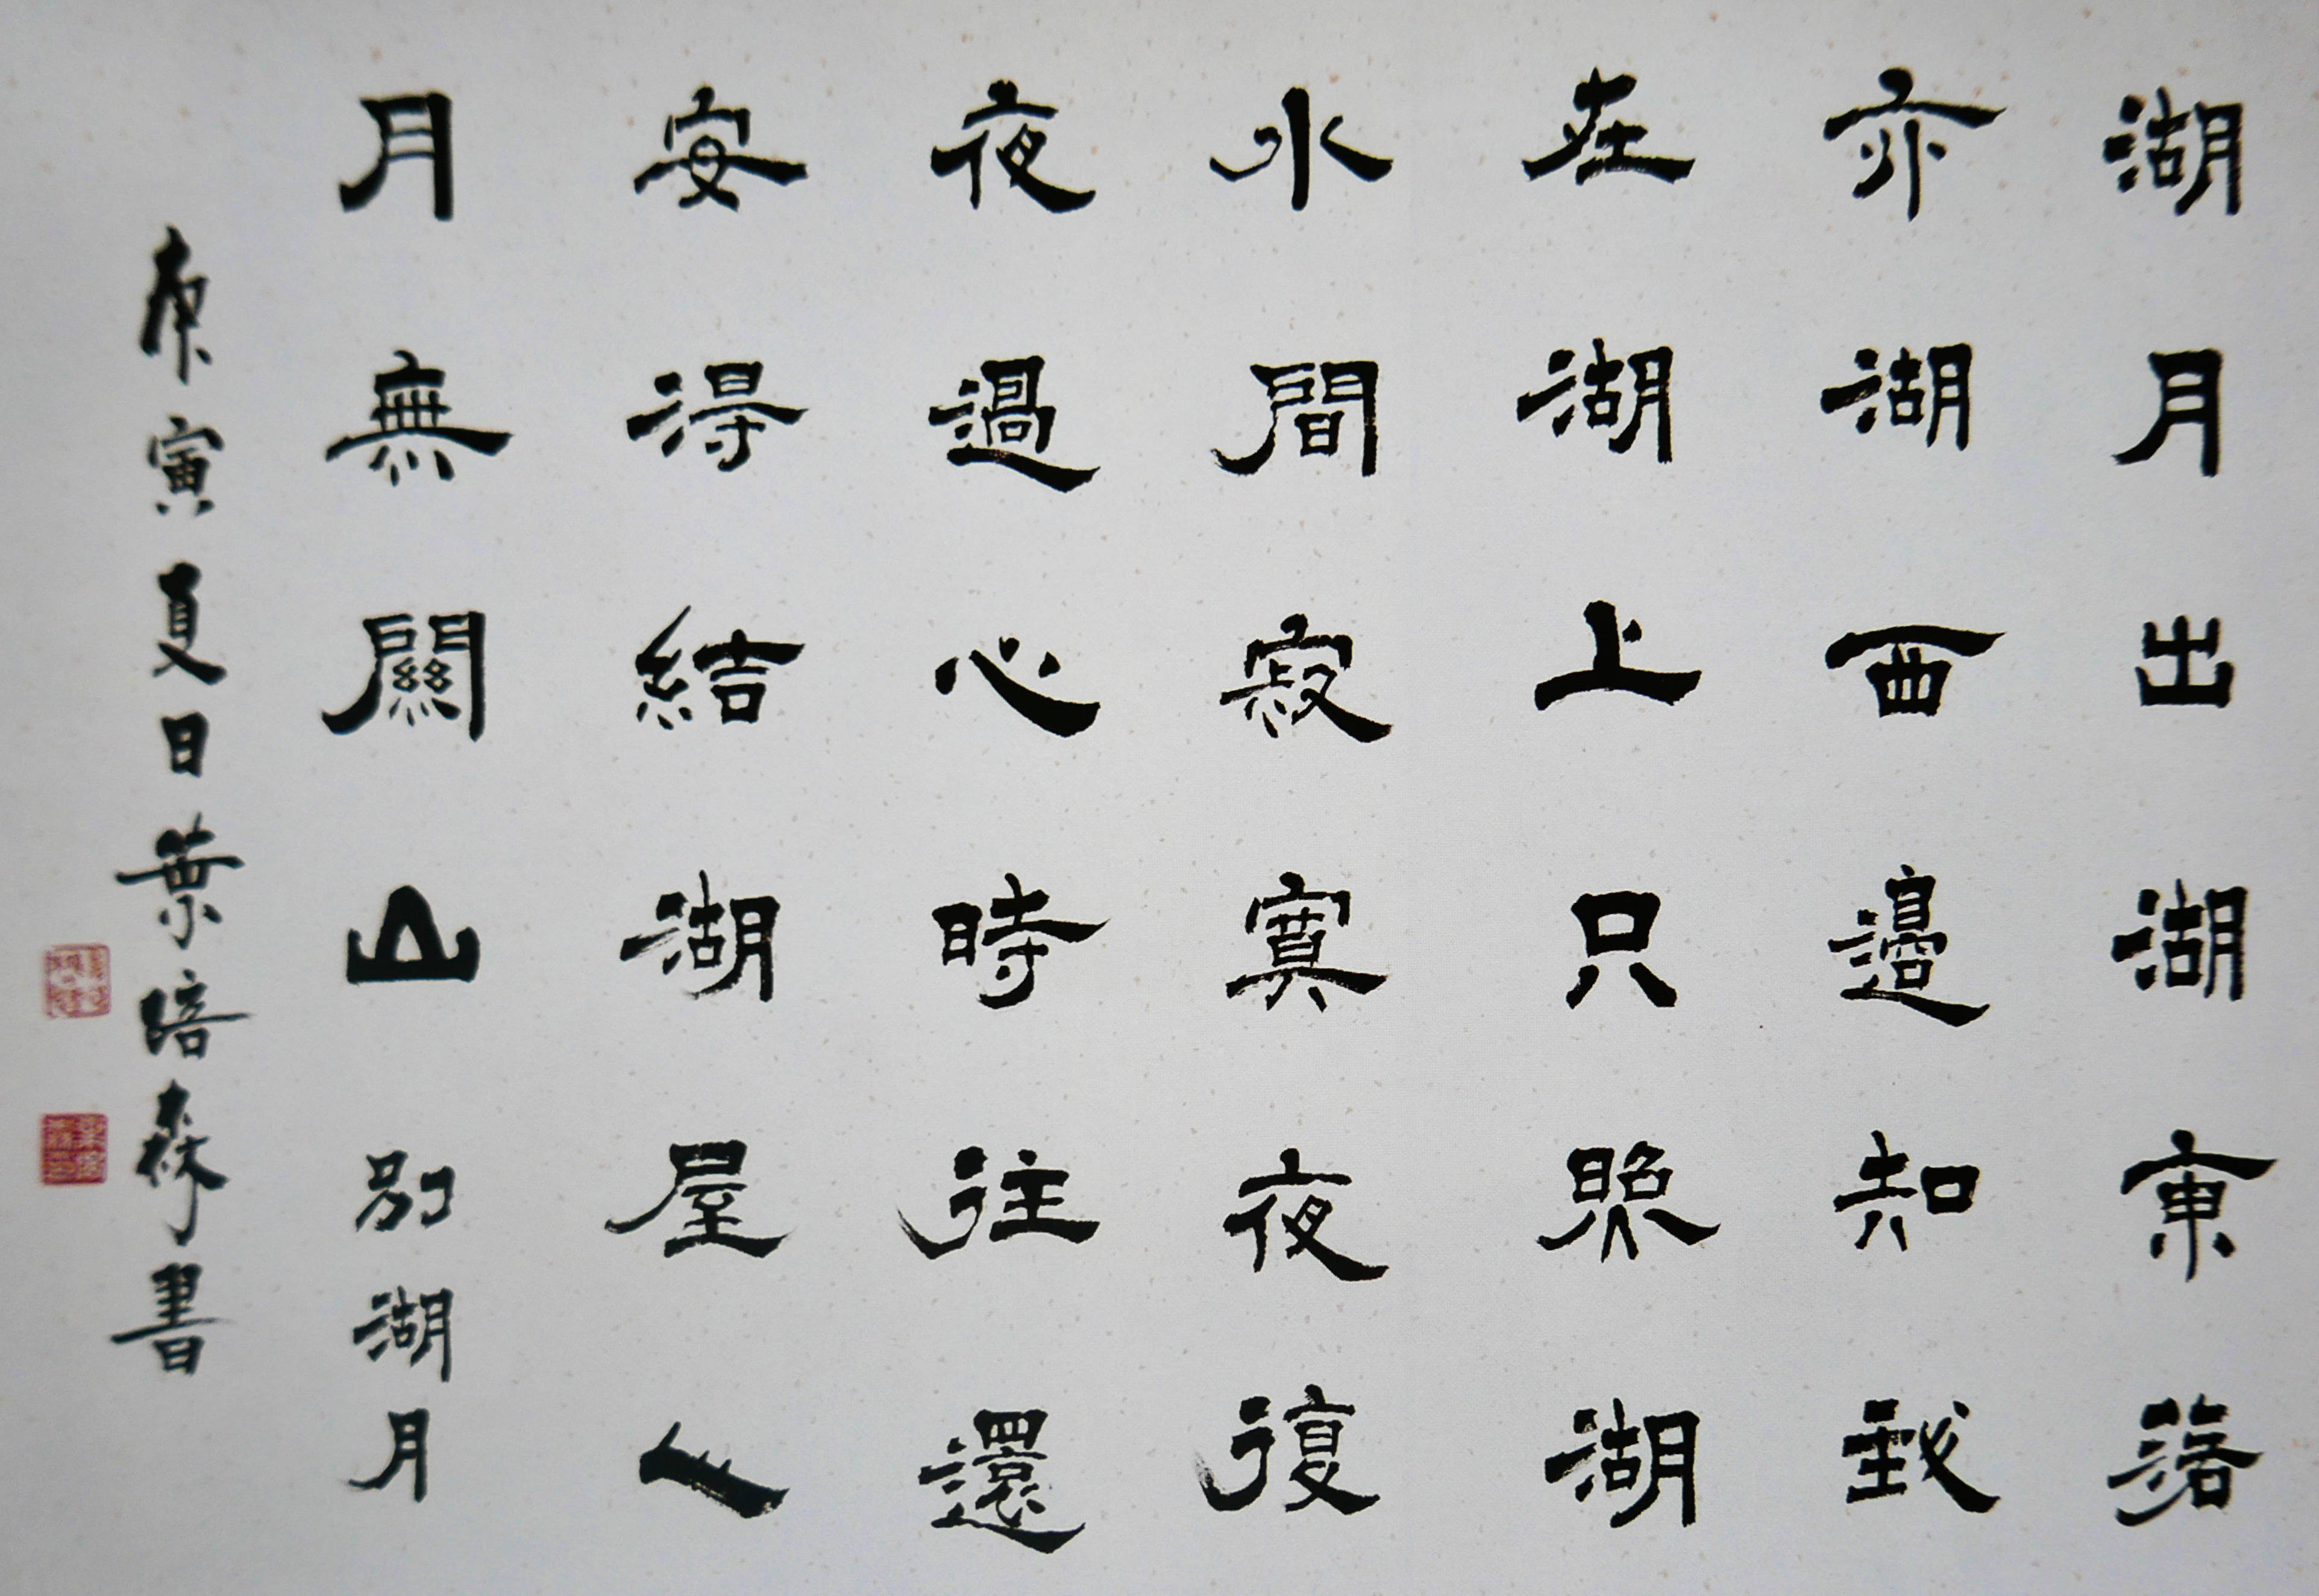 湖月出湖東落
亦湖西邊知我
在湖上只照湖
水間寂寞夜復
夜過心時往還
安得結湖屋人
月無關山別湖月
庚寅夏日葉培森書